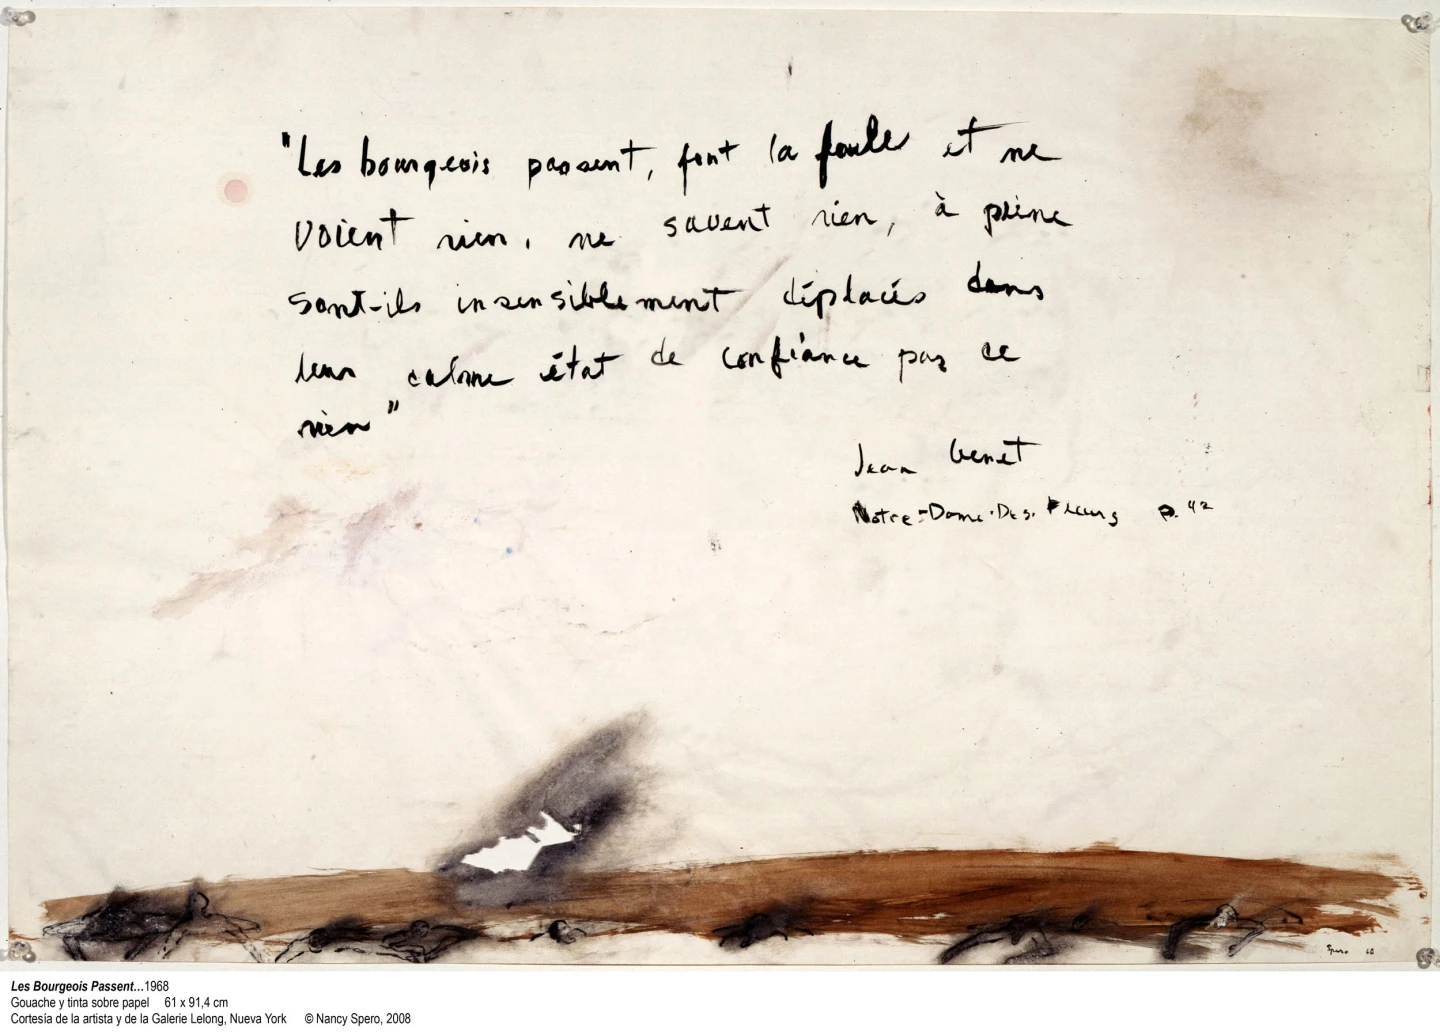 "Les bourgeois passent, font la foule et ne
voient rien, ne savent rien, à peine
sont-ils insensiblement déplacés dans
leur calme état de confiance par ce
rien"
Jean Genet
Notre-Dame-Des-Fleurs p. 42
Spero 68
Les Bourgeois Passent...1968
Gouache y tinta sobre papel 61 x 91,4 cm
Cortesía de la artista y de la Galerie Lelong, Nueva York © Nancy Spero, 2008